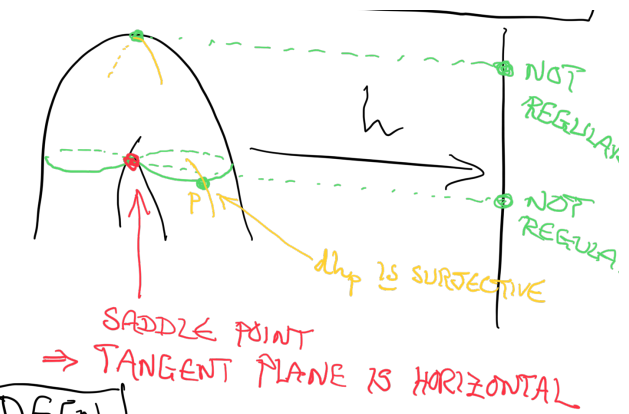 h
NOT
REGULAR
P
NOT
REGULA
dhp IS SURJECTIVE
SADDLE POINT
⇒ TANGENT PLANE IS HORIZONTAL